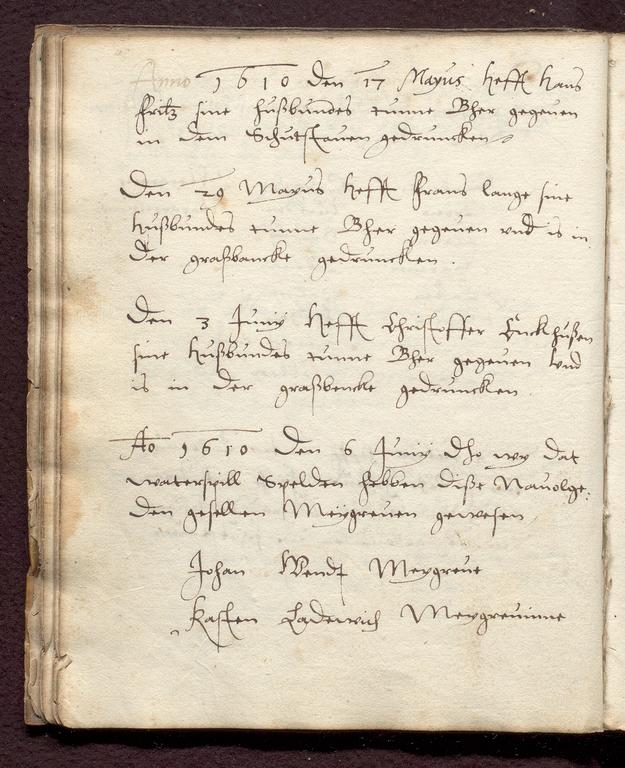 Anno 1610 den 17 Mayus hefft hans
fritz sine hußbundes tunne Bher gegeuen
in dem Schutstauen gedruncken
Den 29 Mayus hefft frans lange sine
hußbundes tunne Bher gegeuen vnd is in
der graßbancke gedruncken.
Den 3 Juny hefft Christoffer
sine hußbundes tunne Bher gegeuen vnd
is in der graßbencke gedruncken
Ao 1610 Den 6 Juny dho wy dat
waterspill Spelden hebben diße Nauolge:
den gesellen Meygreuen gewesen
Johan Wendt Meygreue
Kasten Laderwich Meygreuinne